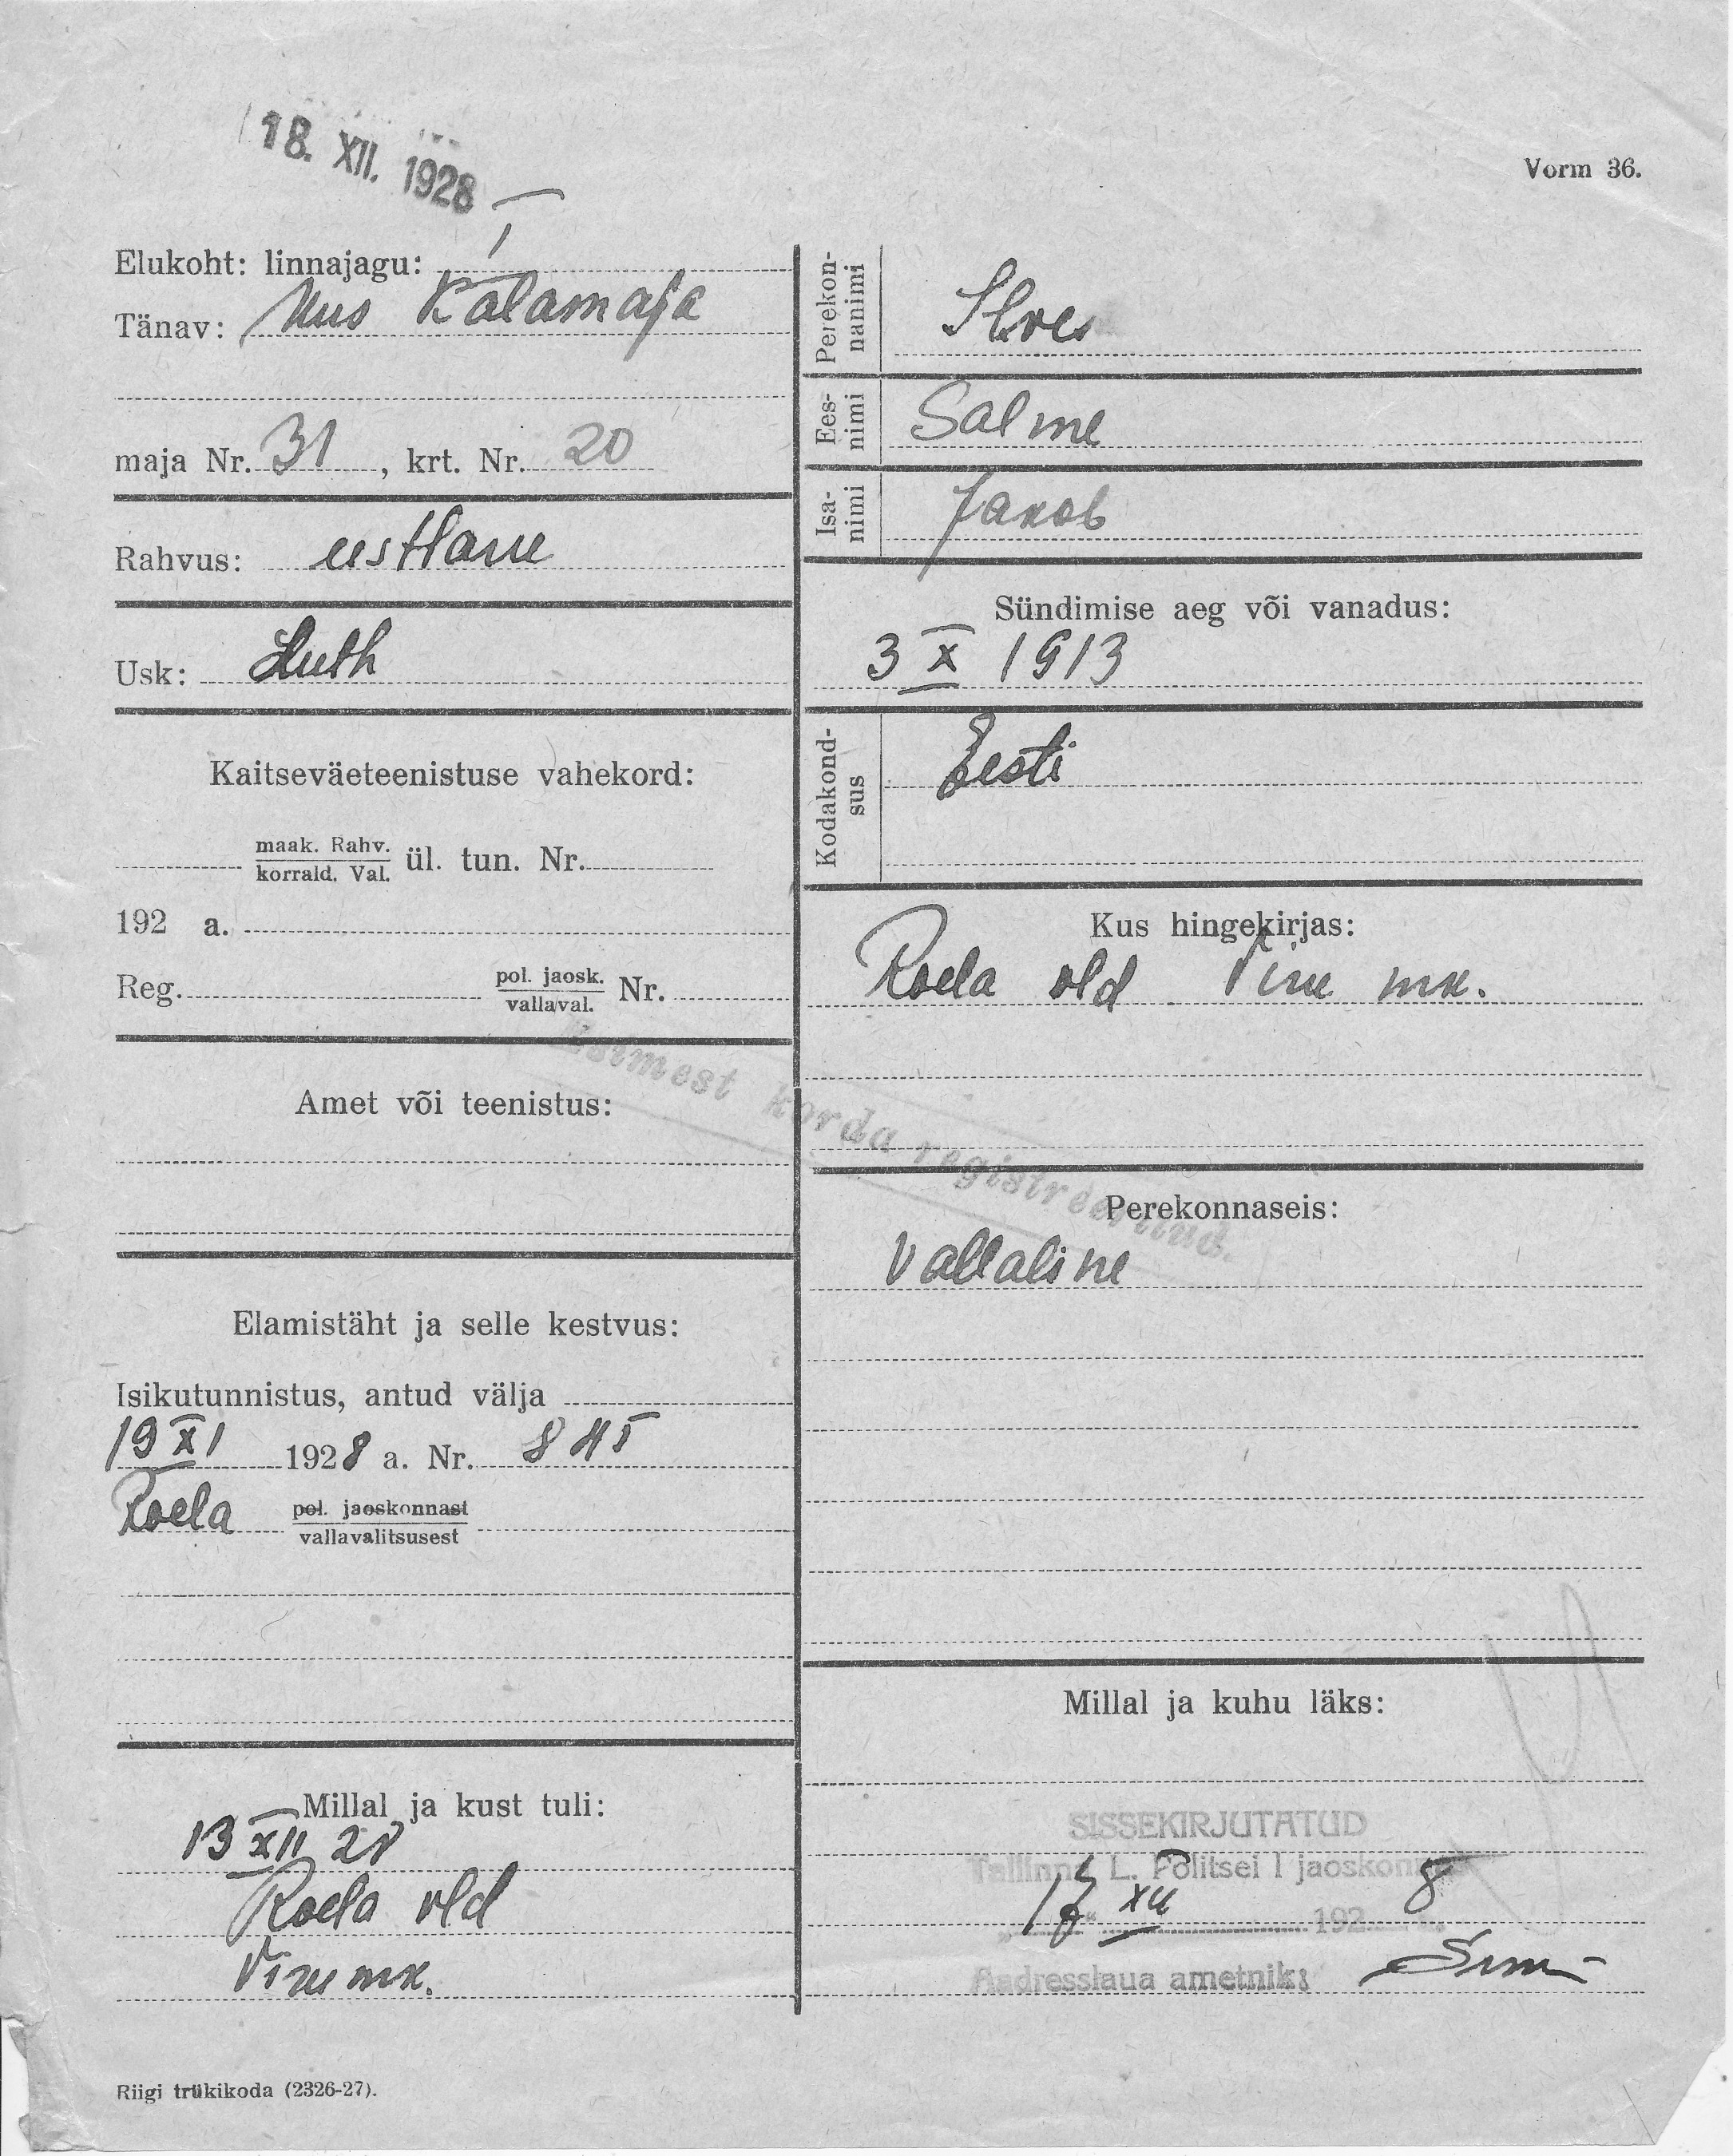 18. XII. 1928
Vorm 36.
Elukoht: linnajagu: I
Tänav: Uus Kalamaja
maja Nr. 31, krt. Nr. 20
Rahvus: eestlane
Usk: Luth
Kaitseväeteenistuse vahekord:
maak. Rahv.
korrald. Val. ül. tun. Nr.
192 a.
Reg. pol. jaosk. Nr.
vallaval.
Amet või teenistus:
Elamistäht ja selle kestvus:
Isikutunnistus, antud välja
19 XI 1928 a. Nr. 845
Roela pol. jaoskonnast
vallavalitsusest
Millal ja kust tuli:
13 XII 28
Roela vld
Viru mk.
Riigi trükikoda (2326-27).
Perekon-
nanimi
Ilves
Ees-
nimi
Salme
Isa-
nimi
Jakob
Sündimise aeg või vanadus:
3 X 1913
Kodakond-
sus
Eesti
Kus hingekirjas:
Roela vld Viru mk.
Esimest korda registreeritud.
Perekonnaseis:
Vallaline
Millal ja kuhu läks:
SISSEKIRJUTATUD
Tallinna L. Politsei I jaoskonnas
17 XII 1928
Aadresslaua ametnik: